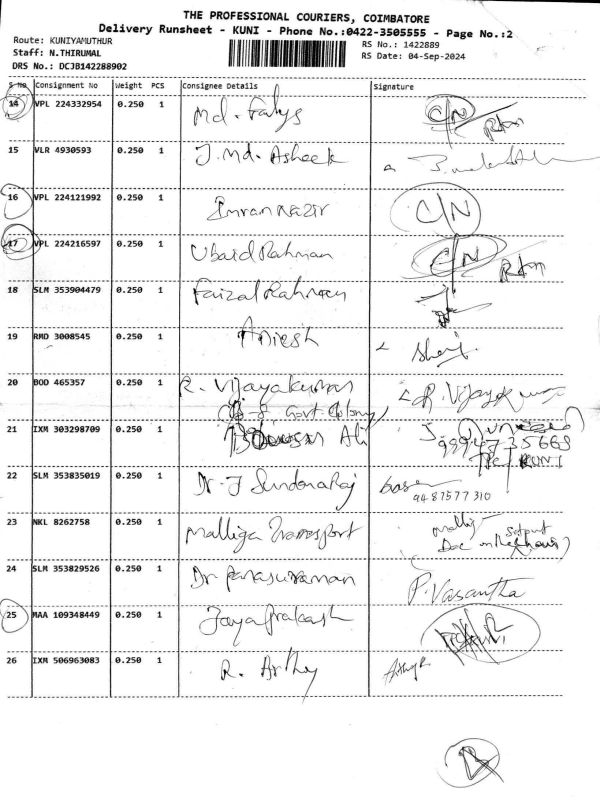 THE PROFESSIONAL COURIERS, COIMBATORE
Delivery Runsheet - KUNI - Phone No.:0422-3505555 - Page No.:2
Route: KUNIYAMUTHUR RS No.: 1422889
Staff: N.THIRUMAL RS Date: 04-Sep-2024
DRS No.: DCJB142288902
S No Consignment No Weight PCS Consignee Details Signature
14 VPL 224332954 0.250 1 Md. C/N
15 VLR 4930593 0.250 1 J. Md. Asheek
16 VPL 224121992 0.250 1 Imran Nazir C/N
17 VPL 224216597 0.250 1 Ubaid Rahman C/N
18 SLM 353904479 0.250 1 Faizal Rahman
19 RMD 3008545 0.250 1 Aniesh
20 BOD 465357 0.250 1 R. Vijayakumar R. Vijayakumar
Govt. Colony
21 IXM 303298709 0.250 1 Ali
KUNI
22 SLM 353835019 0.250 1 Dr. J Sundararaj
9487577310
23 NKL 8262758 0.250 1 Malliga Transport
24 SLM 353829526 0.250 1 Dr Parasuraman P. Vasantha
25 MAA 109348449 0.250 1 Jayaprakash
26 IXM 506963083 0.250 1 R. Arthy